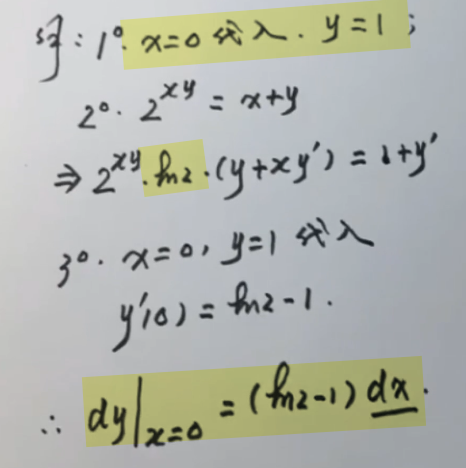 解: 1°. x=0 代入. y=1;
2°. 2^{xy} = x+y
⇒ 2^{xy}·ln2·(y+xy') = 1+y'
3°. x=0, y=1 代入
y'(0) = ln2-1.
∴ dy|_{x=0} = (ln2-1) dx.